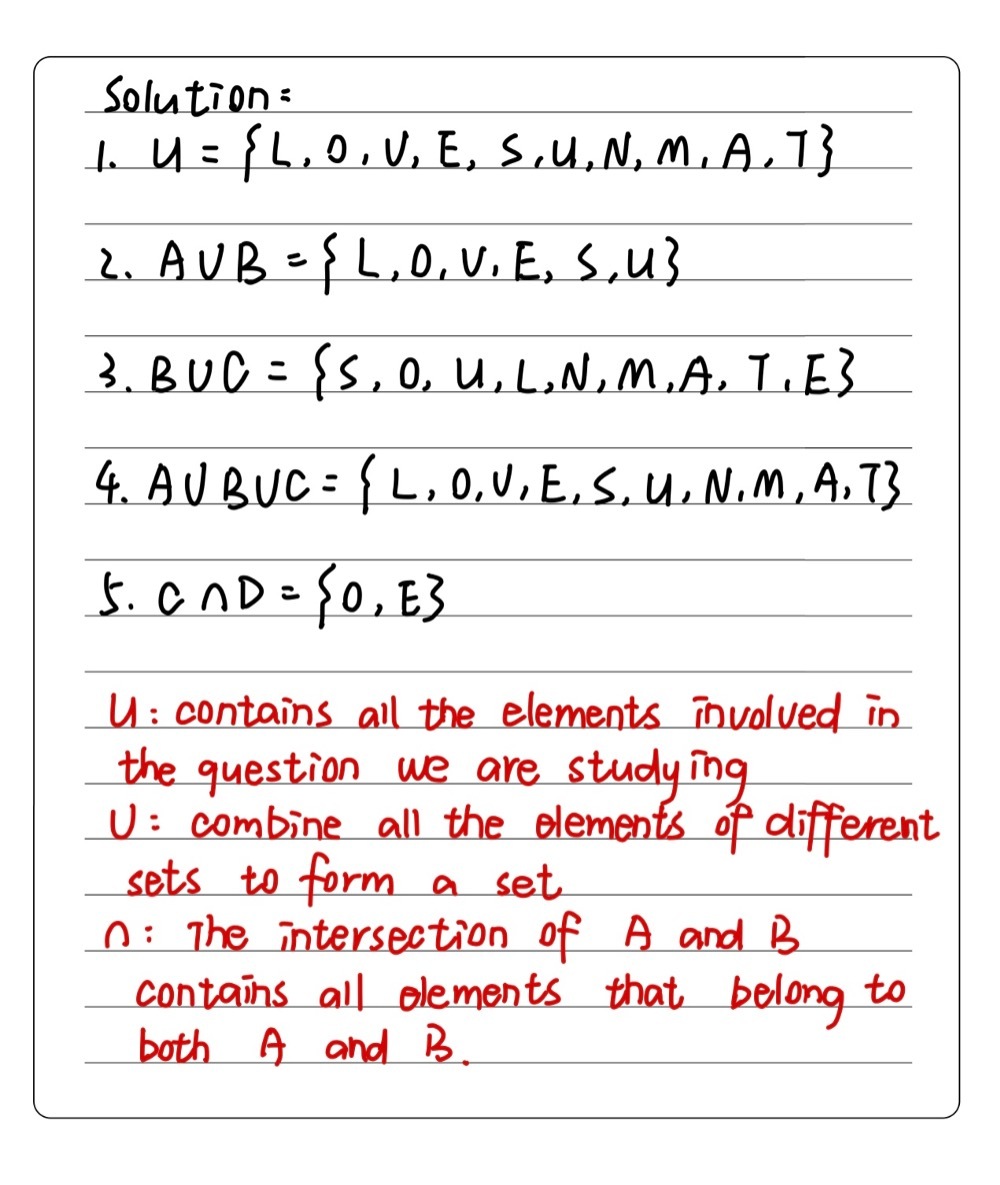 Solution:
1. U = {L, O, V, E, S, U, N, M, A, T}
2. A∪B = {L, O, V, E, S, U}
3. B∪C = {S, O, U, L, N, M, A, T, E}
4. A∪B∪C = {L, O, V, E, S, U, N, M, A, T}
5. C∩D = {O, E}
U: contains all the elements involved in
the question we are studying
∪: combine all the elements of different
sets to form a set
∩: The intersection of A and B
contains all elements that belong to
both A and B.